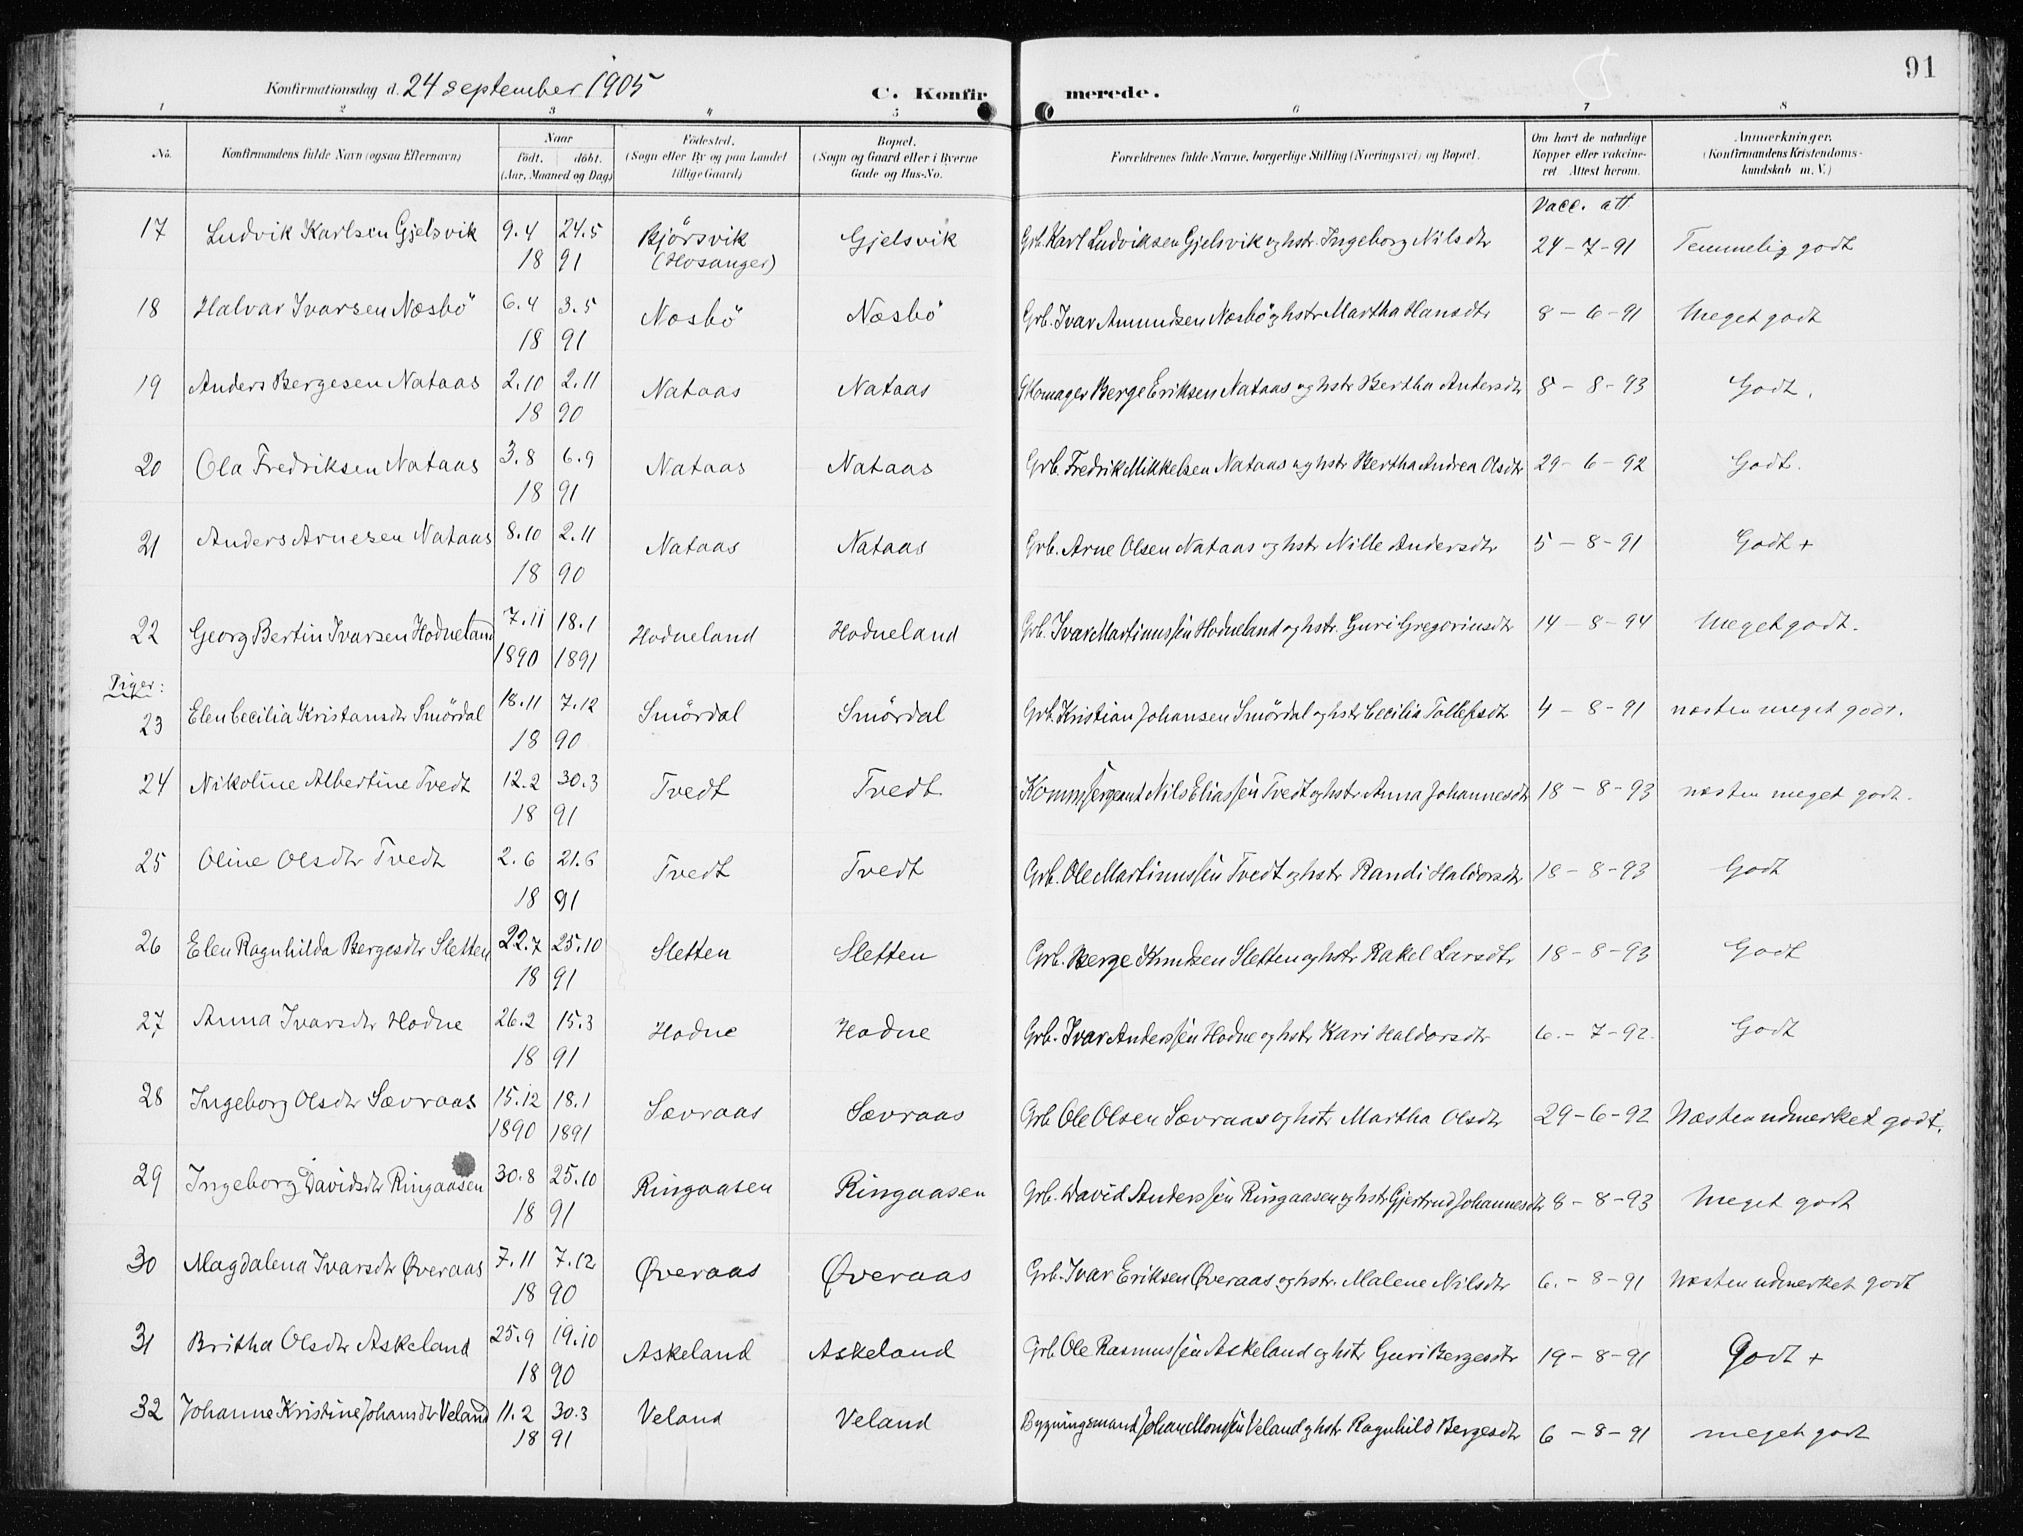 91
Konfirmationsdag d. 24 september 1905 C. Konfir merede.
1 2 3 4 5 6 7 8
No. Konfirmandens fulde Navn (ogsaa Efternavn) Naar födt. döbt. (Aar, Maaned og Dag) Födested. (Sogn eller By og paa Landet tillige Gaard) Bopæl. (Sogn og Gaard eller i Byerne Gade og Hus-No. Forældrenes fulde Navne, borgerlige Stilling (Næringsvei) og Bopæl. Om havt de naturlige Kopper eller vakcineret Attest herom. Anmærkninger. (Konfirmandens Kristendomskundskab m. V.)
Vacc. att
17 Ludvik Karlsen Gjelsvik 9.4 24.5 Bjørsvik Gjelsvik Grb. Karl Ludviksen Gjelsvik og hstr. Ingeborg Nilsdtr 24-7-91 Temmelig godt
18 91 (Hosanger)
18 Halvar Ivarsen Næsbö 6.4 3.5 Næsbö Næsbö Grb. Ivar Amundsen Næsbö og hstr Martha Hansdtr 8-6-91 Meget godt
18 91
19 Anders Bergesen Nataas 2.10 2.11 Nataas Nataas Skomager Berge Eriksen Nataas og hstr Bertha Andersdtr 8-8-93 Godt.
18 90
20 Ola Fredriksen Nataas 3.8 6.9 Nataas Nataas Grb. Fredrik Mikkelsen Nataas og hstr Bertha Andrea Olsdtr 29-6-92 Godt.
18 91
21 Anders Arnesen Nataas 8.10 2.11 Nataas Nataas Grb. Arne Olsen Nataas og hstr Nille Andersdtr 5-8-91 Godt +
18 90
22 Georg Bertin Ivarsen Hodneland 7.11 18.1 Hodneland Hodneland Grb. Ivar Martinussen Hodneland og hstr. Guri Gregoriusdtr 14-8-94 Meget godt.
1890 1891
Piger:
23 Elen Cecilia Kristansdtr Smördal 18.11 7.12 Smördal Smördal Grb. Kristian Johansen Smördal og hstr Cecilia Tollefsdtr 4-8-91 næsten meget godt.
18 90
24 Nikoline Albertine Tvedt 12.2 30.3 Tvedt Tvedt Kommsergeant Nils Eliassen Tvedt og hstr Anna Johannesdtr 18-8-93 næsten meget godt.
18 91
25 Oline Olsdtr Tvedt 2.6 21.6 Tvedt Tvedt Grb. Ole Martinussen Tvedt og hstr Randi Haldorsdtr 18-8-93 Godt
18 91
26 Elen Ragnhilda Bergesdtr Sletten 22.7 25.10 Sletten Sletten Grb. Berge Knudsen Sletten og hstr Rakel Larsdtr 18-8-93 Godt
18 91
27 Anna Ivarsdtr Hodne 26.2 15.3 Hodne Hodne Grb. Ivar Anderssen Hodne og hstr Kari Haldorsdtr 6.-7-92. Godt
18 91
28 Ingeborg Olsdtr Sævraas 15.12 18.1 Sævraas Sævraas Grb Ole Olsen Sævraas og hstr Martha Olsdtr 29-6-92 Næsten udmerket godt.
1890 1891
29 Ingeborg Davidsdtr Ringaasen 30.8 25.10 Ringaasen Ringaasen Grb. David Anderssen Ringaasen og hstr Gjertrud Johannesdtr 8-8-93 Meget godt
18 91
30 Magdalena Ivarsdtr Øveraas 7.11 7.12 Øveraas Øveraas Grb. Ivar Eriksen Øveraas og hstr. Malene Nilsdtr 6.-8-91 Næsten udmerket godt
18 90
31 Britha Olsdtr Askeland 25.9 19.10 Askeland Askeland Grb Ole Rasmussen Askeland og hstr Guri Bergesdtr 19-8-91 Godt +
18 90
32 Johanne Kristine Johansdtr Veland 11.2 30.3 Veland Veland Bygningsmand Johan Monssen Veland og hstr Ragnhild Bergesdtr 6-8-91 meget godt
18 91